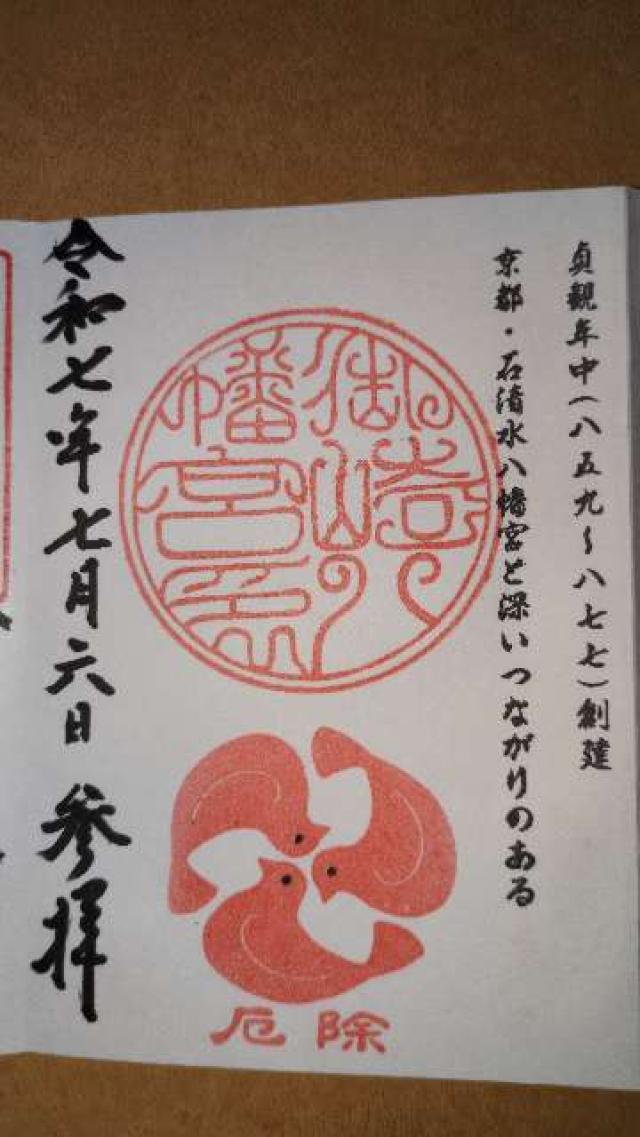 貞観年中(八五九~八七七)創建
京都・石清水八幡宮と深いつながりのある
御崎八
幡宮印
厄除
令和七年七月六日 参拝